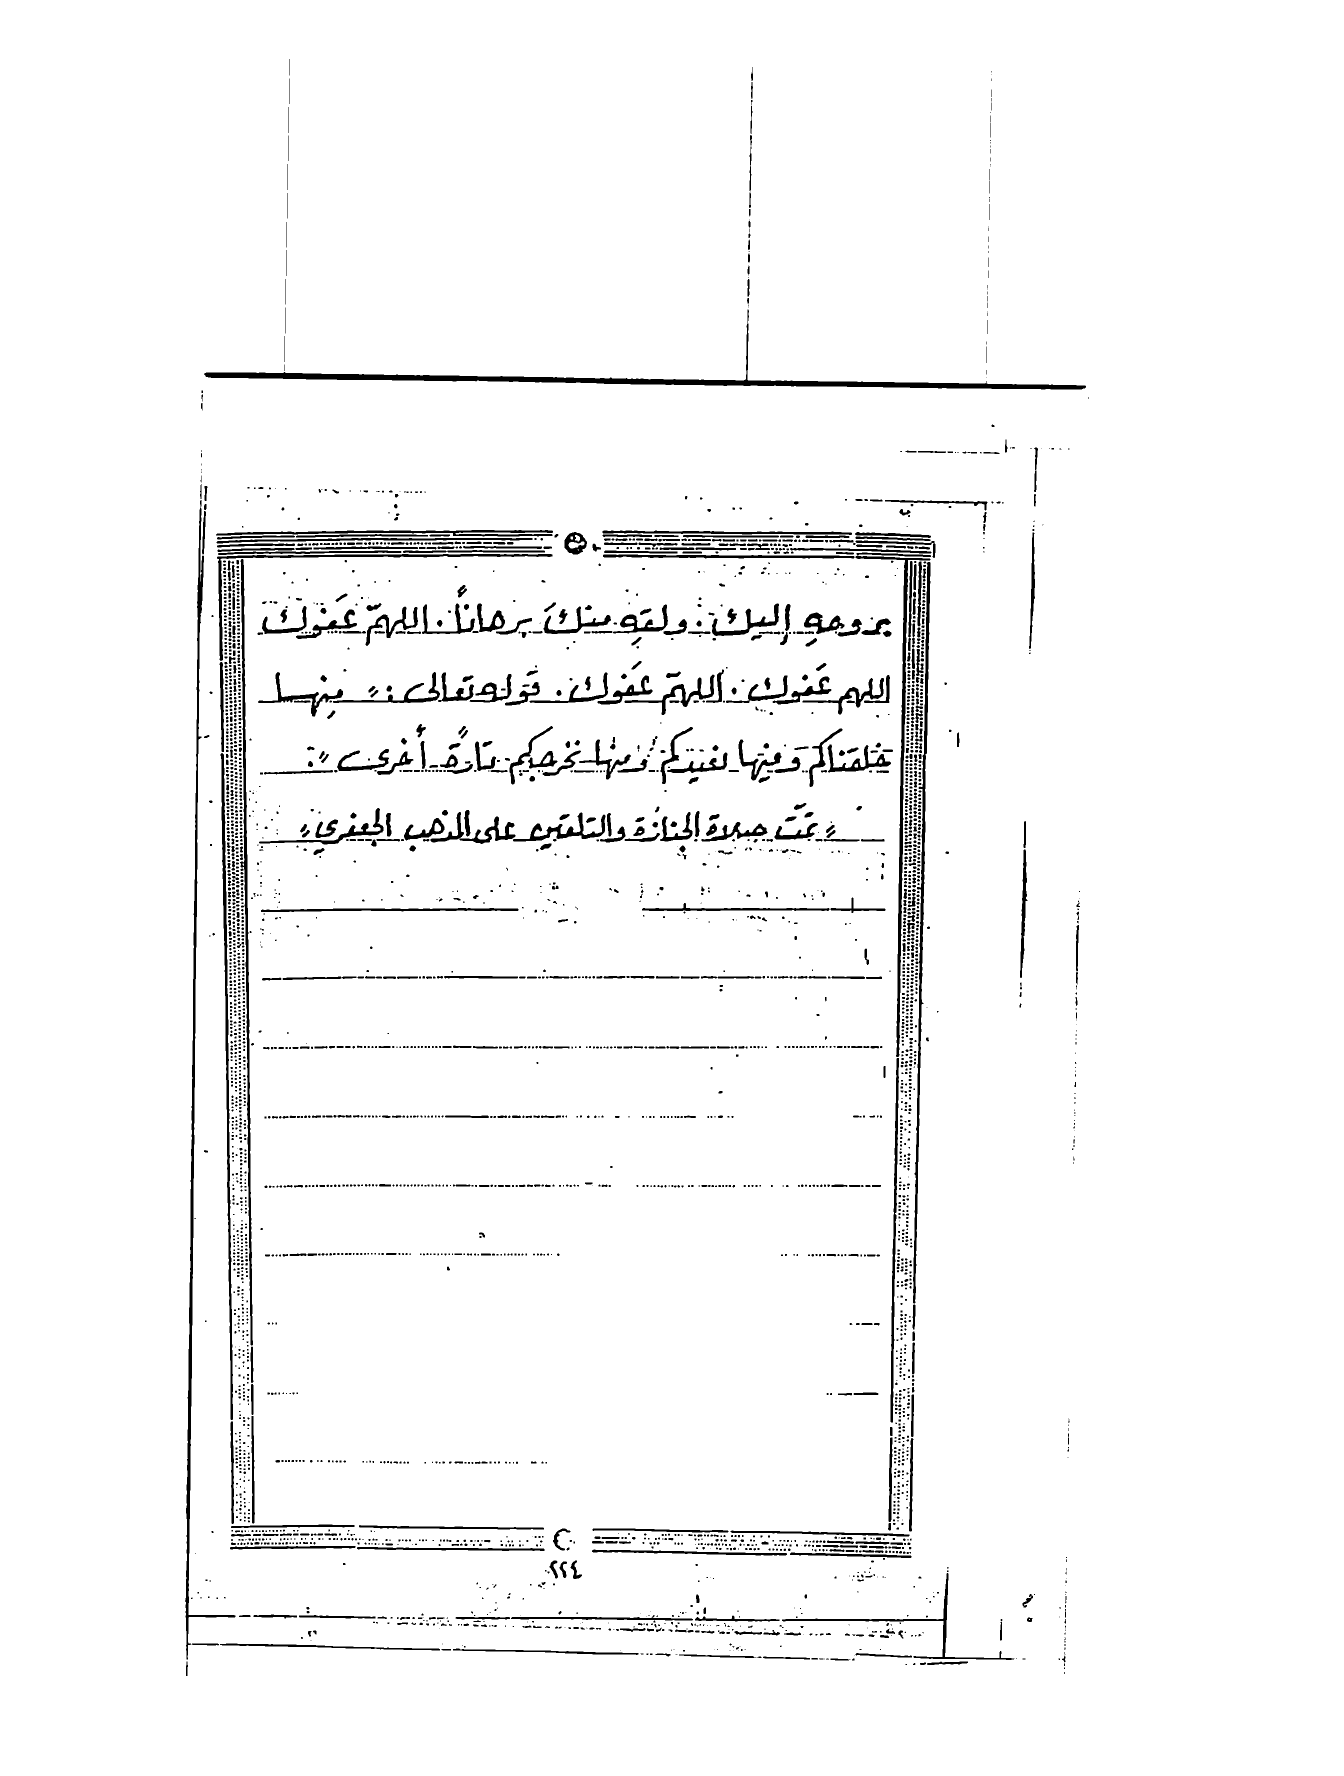 بروحهِ إليك . ولقهِ منكَ برهاناً . اللهمّ عَفوك
اللهم عَفوك . اللهمّ عَفوك . قَوله تعالى : » مِنها
خلقناكم وَمِنها نعيدكم وَمنها نخرجكم تارةً أُخرى «:
» تمّت صلاة الجنازة والتلقين على المذهب الجعفري «
٢٢٤